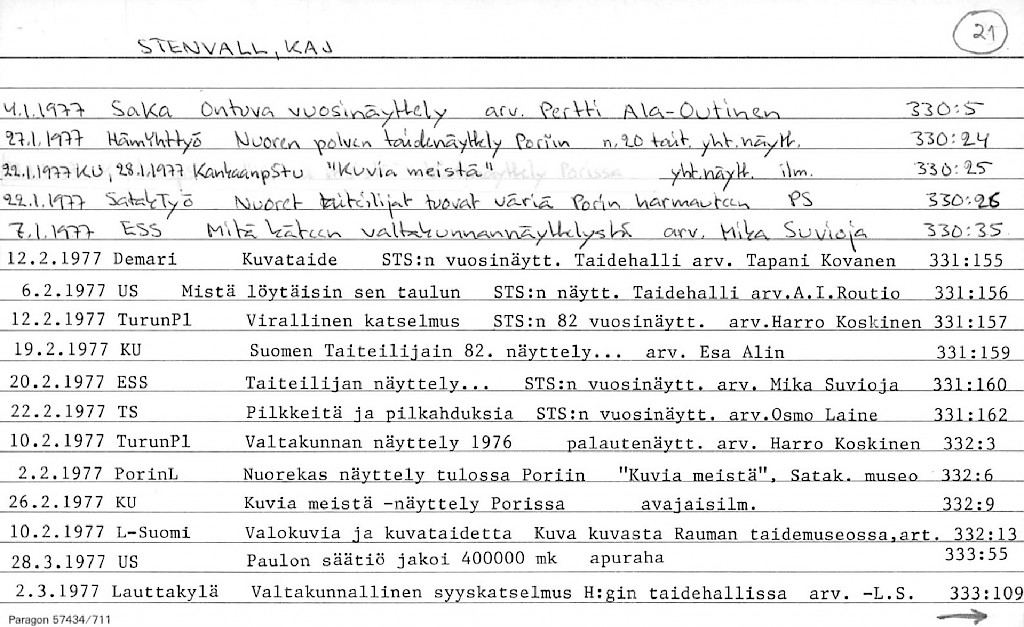 21
STENVALL, KAJ
4.1.1977 SaKa Ontuva vuosinäyttely arv. Pertti Ala-Outinen 330:5
27.1.1977 HämYhttyö Nuoren polven taidenäyttely Poriin n.20 tait. yht.näytt. 330:24
22.1.1977 KU, 28.1.1977 KankaanpStu "Kuvia meistä" yht.näytt. ilm. 330:25
22.1.1977 SatakTyö Nuoret taiteilijat tuovat väriä Porin harmauteen PS 330:26
7.1.1977 ESS Mitä käteen valtakunnannäyttelystä arv. Mika Suvioja 330:35
12.2.1977 Demari Kuvataide STS:n vuosinäytt. Taidehalli arv. Tapani Kovanen 331:155
6.2.1977 US Mistä löytäisin sen taulun STS:n näytt. Taidehalli arv.A.I.Routio 331:156
12.2.1977 TurunPl Virallinen katselmus STS:n 82 vuosinäytt. arv.Harro Koskinen 331:157
19.2.1977 KU Suomen Taiteilijain 82. näyttely... arv. Esa Alin 331:159
20.2.1977 ESS Taiteilijan näyttely... STS:n vuosinäytt. arv. Mika Suvioja 331:160
22.2.1977 TS Pilkkeitä ja pilkahduksia STS:n vuosinäytt. arv.Osmo Laine 331:162
10.2.1977 TurunPl Valtakunnan näyttely 1976 palautenäytt. arv. Harro Koskinen 332:3
2.2.1977 PorinL Nuorekas näyttely tulossa Poriin "Kuvia meistä", Satak. museo 332:6
26.2.1977 KU Kuvia meistä -näyttely Porissa avajaisilm. 332:9
10.2.1977 L-Suomi Valokuvia ja kuvataidetta Kuva kuvasta Rauman taidemuseossa,art. 332:13
28.3.1977 US Paulon säätiö jakoi 400000 mk apuraha 333:55
2.3.1977 Lauttakylä Valtakunnallinen syyskatselmus H:gin taidehallissa arv. -L.S. 333:109
Paragon 57434/711